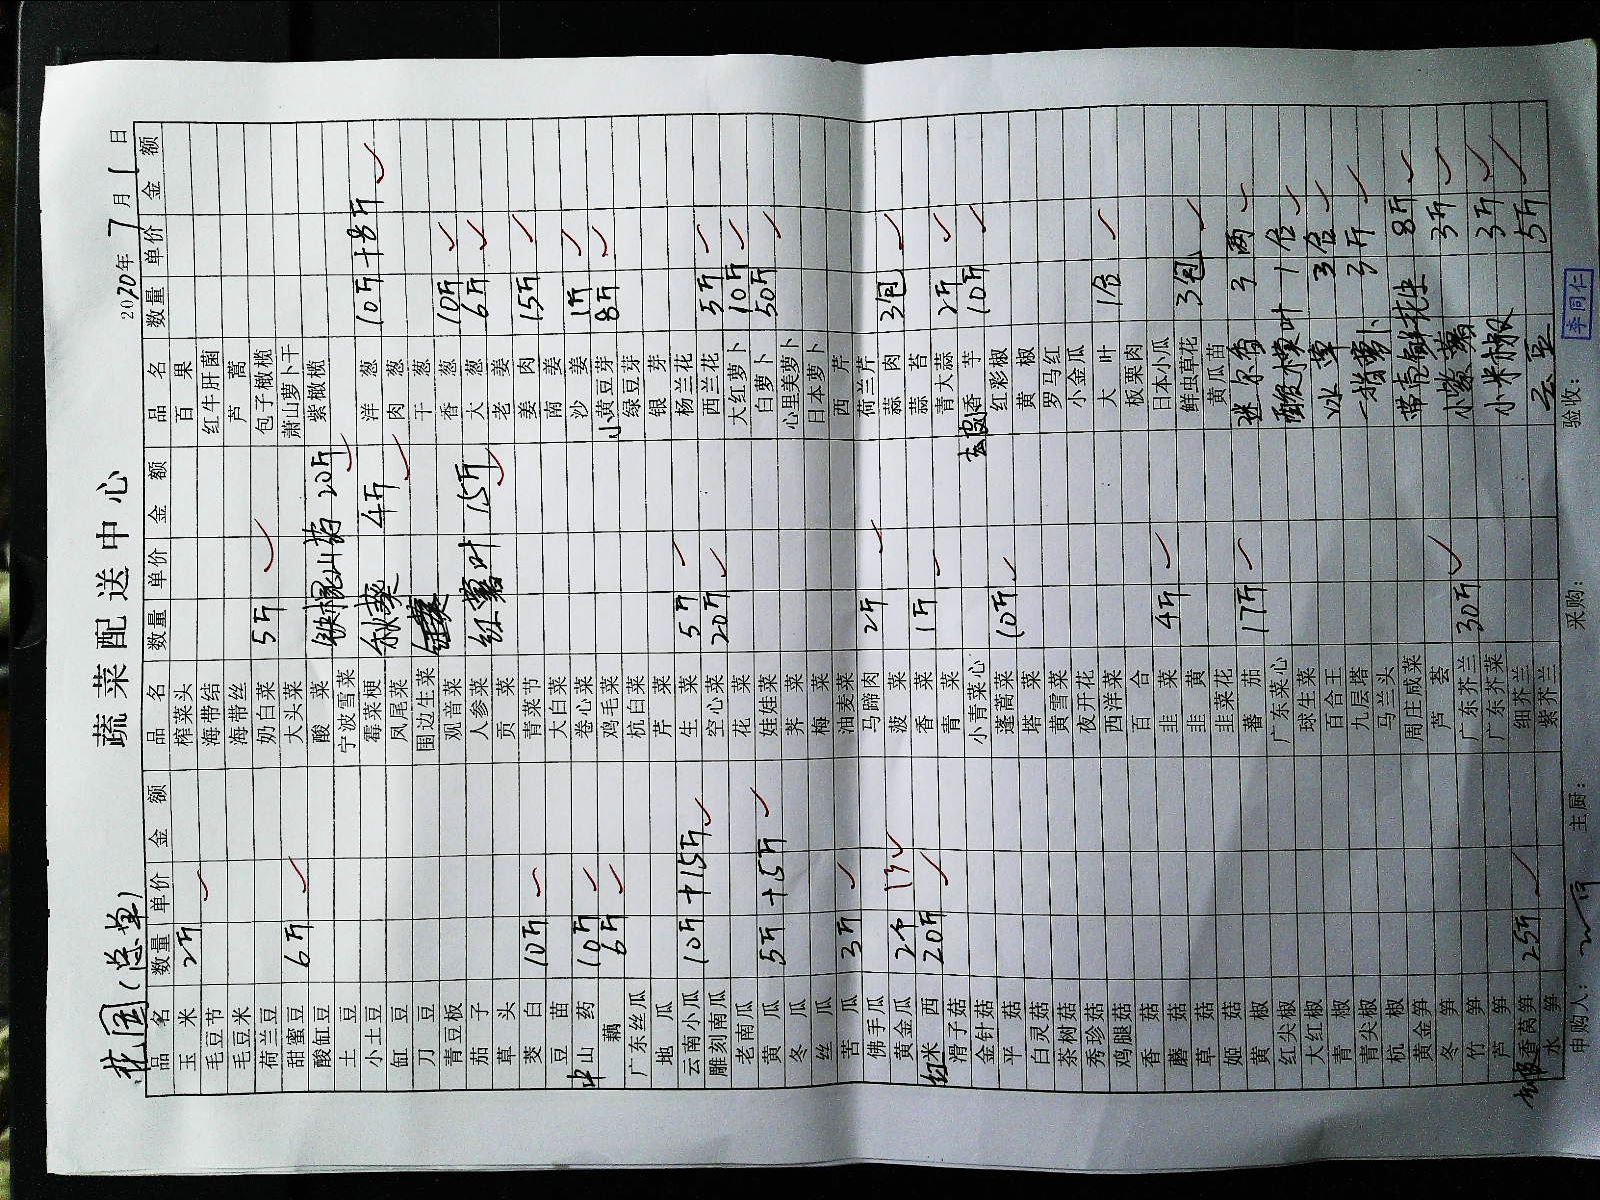 蔬菜配送中心
桂园(总单)
2020年7月1日
品名 数量 单价 金额
玉米 2斤
毛豆节
毛豆米
荷兰豆
甜蜜豆 6斤
酸缸豆
土豆
小土豆
缸豆
刀豆
青豆板
茄子
草头
茭白 10斤
豆苗
中山药 10斤
藕 6斤
广东丝瓜
地瓜
云南小瓜 10斤+15斤
雕刻南瓜
老南瓜
黄瓜 5斤+15斤
冬瓜
丝瓜
苦瓜 3斤
佛手瓜
黄金瓜 2个
红米西 20斤
滑子菇
金针菇
平菇
白灵菇
茶树菇
秀珍菇
鸡腿菇
香菇
蘑菇
草菇
姬菇
黄椒
红尖椒
大红椒
青椒
青尖椒
杭椒
黄金笋
冬笋
竹笋
芦笋
香莴笋 25斤
水笋
品名 数量 单价 金额
榨菜头
海带结
海带丝
奶白菜 5斤
大头菜
酸菜 铁棍山药 20斤
宁波雪菜
霉菜梗 秋葵 4斤
凤尾菜
围边生菜
观音菜
人参菜 红薯叶 15斤
贡菜
青菜节
大白菜
卷心菜
鸡毛菜
杭白菜
芹菜
生菜 5斤
空心菜 20斤
花菜
娃娃菜
荠菜
梅菜
油麦菜
马蹄肉 2斤
菠菜
香菜 1斤
青菜
小青菜心
蓬蒿菜 10斤
塔菜
黄雪菜
夜开花
西洋菜
百合
韭菜 4斤
韭黄
韭菜花
蕃茄 17斤
广东菜心
球生菜
百合王
九层塔
马兰头
周庄咸菜
芦荟
广东芥兰 30斤
广东芥菜
细芥兰
紫芥兰
品名 数量 单价 金额
百果
红牛肝菌
芦蒿
包子橄榄
萧山萝卜干
紫橄榄
洋葱 10斤+8斤
肉葱
干葱
香葱 10斤
大葱 6斤
老姜
姜肉 15斤
南姜
沙姜 1斤
小黄豆芽 8斤
绿豆芽
银芽
杨兰花
西兰花 5斤
大红萝卜 10斤
白萝卜 50斤
心里美萝卜
日本萝卜
西芹
荷兰芹
蒜肉 3包
蒜苔
青大蒜 2斤
去皮香芋 10斤
红彩椒
黄椒
罗马红
小金瓜
大叶 1包
板栗肉
日本小瓜
鲜虫草花 3包
黄瓜苗
迷尔香 3两
酸模叶 1盒
冰草 3盒
一指萝卜 3斤
带壳鲜花生 8斤
小紫薯 3斤
小米椒 3斤
5斤
申购人:
主厨:
采购:
验收: 李同仁